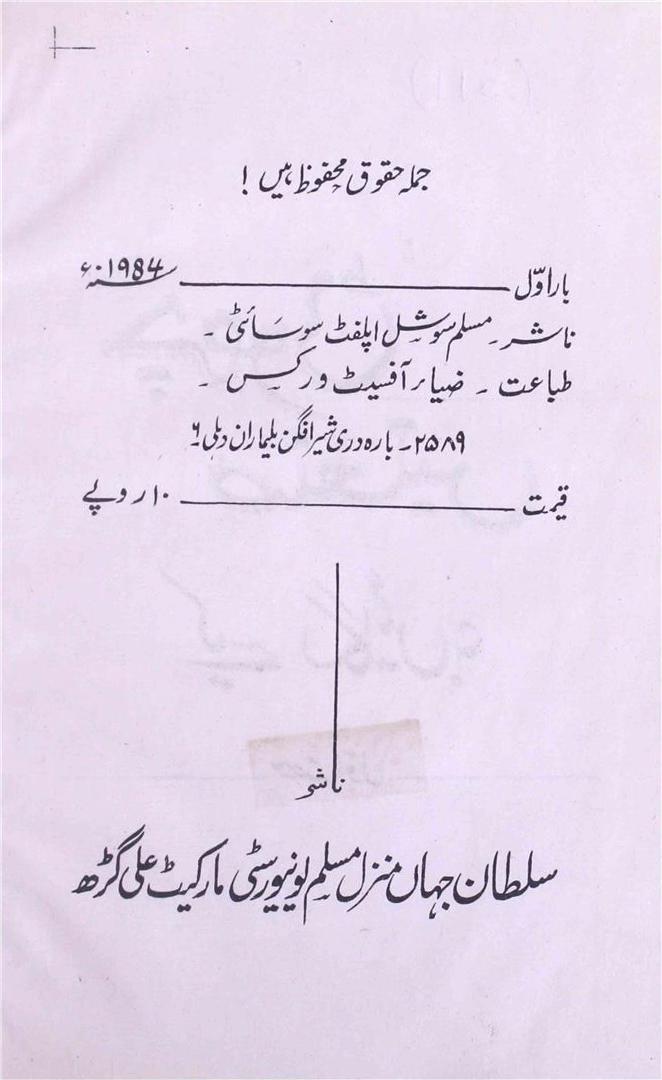 جملہ حقوق محفوظ ہیں !
بار اوّل ـــــــــ سنہ 1984ء
ناشر ۔ مسلم سوشل اپلفٹ سوسائٹی ۔
طباعت ۔ ضیاء آفسیٹ ورکس ۔
۲۵۸۹ ۔ بارہ دری شیر افگن بلیماران دہلی ۶
قیمت ـــــــــ ۱۰ روپے
ناشر
سلطان جہاں منزل مسلم یونیورسٹی مارکیٹ علی گڑھ